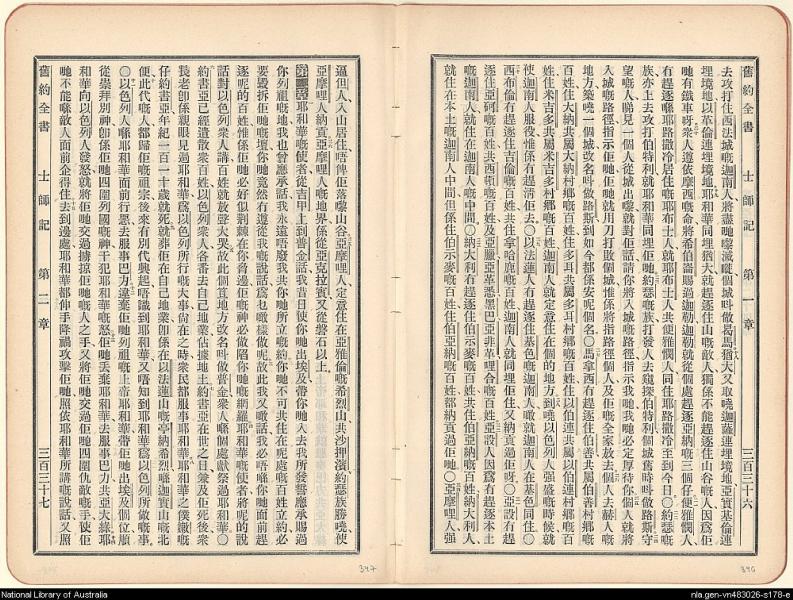 舊約全書 士師記 第一章 三百三十六
去攻打住西法城嘅迦南人將盡地嚟滅嚨個城呌做曷馬猶大又取嘵迦薩連埋境地亞實基倫連
埋境地以革倫連埋境地耶和華同埋猶大就趕逐住山嘅敵人獨係不能趕逐住山谷嘅人因爲佢
哋有鐵車呀衆人遵依摩西嘅命將希伯崙賜過迦勒迦勒就從個處趕逐亞納嘅三個仔便雅憫人
有趕逐喺耶路撒冷居住嘅耶布士人就耶布士人共便雅憫人同住耶路撒冷至到今日〇約瑟嘅
族亦上去攻打伯特利就耶和華同埋佢哋約瑟嘅族打發人去窺探伯特利個城舊時呌做路斯守
望嘅人睇見一個人從城出嚟就對佢話請你將入城嘅路徑指示我哋我哋必定厚待你個人就將
入城嘅路徑指示佢哋佢哋就用刀打敗個城惟係將指路徑個人及佢嘅全家放去個人去赫人嘅
地方築嘵一個城改名呌做路斯到如今都係安呢個名〇馬拿西冇趕逐住伯善共屬伯善村鄉嘅
百姓住大納共屬大納村鄉嘅百姓住多耳共屬多耳村鄉嘅百姓住以伯連共屬以伯連村鄉嘅百
姓住米吉多共屬米吉多村鄉嘅百姓迦南人就定意住在個的地方到嘵以色列人强盛嘅時候就
使迦南人服役惟係冇趕淸佢去〇以法蓮人冇趕逐住基色嘅迦南人噉就迦南人在基色同住〇
西布倫冇趕逐住吉倫嘅百姓共住拿哈鹿嘅百姓迦南人就同埋佢住又納貢過佢呀〇亞設冇趕
逐住亞硦嘅百姓共西頓嘅百姓及亞黑拉亞革悉黑巴亞非革利合嘅百姓亞設人因爲冇趕逐本土
嘅迦南人就住在嗰迦南人之中間〇納大利冇趕逐住伯示麥嘅百姓住伯亞納嘅百姓納大利人
就住在本土嘅迦南人中間但係住伯示麥嘅百姓住伯亞納嘅百姓都納貢過佢哋〇亞摩哩人强
舊約全書 士師記 第二章 三百三十七
逼但人入山居住唔俾佢落嚟山谷亞摩哩人定意住在亞雅倫嘅希烈山共沙押濱約瑟族勝嘵使
亞摩哩人納貢亞摩哩人嘅地界係從亞克拉賓又從磐石以上
耶和華嘅使者從吉甲上到普金話我昔日使你哋出埃及帶你哋入去我所發誓應承賜過
你列祖嘅地我也曾應承話我永遠唔廢我共你哋所立嘅約你哋不可共住在呢處嘅百姓立約必
要毁壞佢哋嘅壇你哋竟然冇遵從我嘅說話爲乜嘅樣做呢故此我又噉話我必唔喺你哋面前趕
逐呢的百姓惟係佢哋必好似荆棘在你脅邊佢哋嘅神必做陷你哋嘅網羅耶和華嘅使者將呢的說
話對以色列衆人講百姓就放聲大哭故此個笪地方改名呌做普金衆人喺個處獻祭過耶和華〇
約書亞已經遣散衆百姓以色列衆人各番去自己地業佔據地土約書亞在世之日兼及佢死後衆
長老卽係親眼見過耶和華爲以色列所行嘅大事尚在之時衆民都服事耶和華耶和華之僕嫩嘅
仔約書亞年紀一百一十歲就死就葬佢在自己地業卽係在以法蓮山嘅亭納希烈喺迦實山嘅北
便此代嘅人都歸佢嘅祖宗後來有別代興起唔識到耶和華又唔知到耶和華爲以色列所做嘅事
〇以色列人喺耶和華面前行惡去服事巴力違棄佢哋列祖嘅上帝耶和華帶佢哋出埃及個位順
從崇拜別神卽係佢哋四圍列國嘅神干犯耶和華嘅怒佢哋丢棄耶和華去服事巴力共亞大錄耶
和華向以色列人發怒就將佢哋交過擄掠佢哋嘅人之手又將佢哋交過佢哋四圍仇敵嘅手使佢
哋不能喺敵人面前企得住去到邊處耶和華都伸手降禍攻擊佢哋照依耶和華所講嘅說話又照
347
346
National Library of Australia
nla.gen-vn483026-s178-e